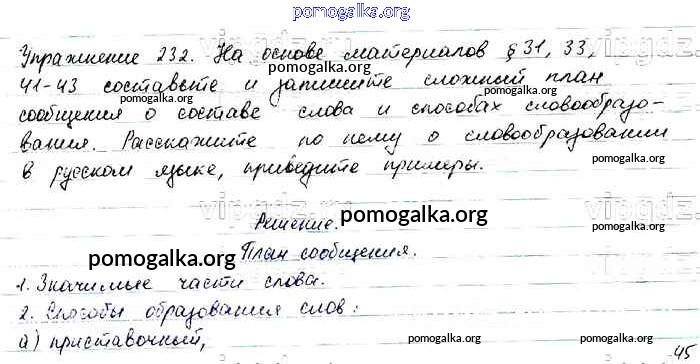 pomogalka.org
Упражнение 232. На основе материалов §31, 33,
pomogalka.org
41-43 составьте и запишите сложный план
pomogalka.org pomogalka.org
сообщения о составе слова и способах словообразо-
вания. Расскажите по нему о словообразовании
pomogalka.org pomogalka.org
в русском языке, приведите примеры.
Решение. pomogalka.org
План сообщения.
pomogalka.org pomogalka.org
1. Значимые части слова.
2. Способы образования слов:
pomogalka.org pomogalka.org
а) приставочный,
45